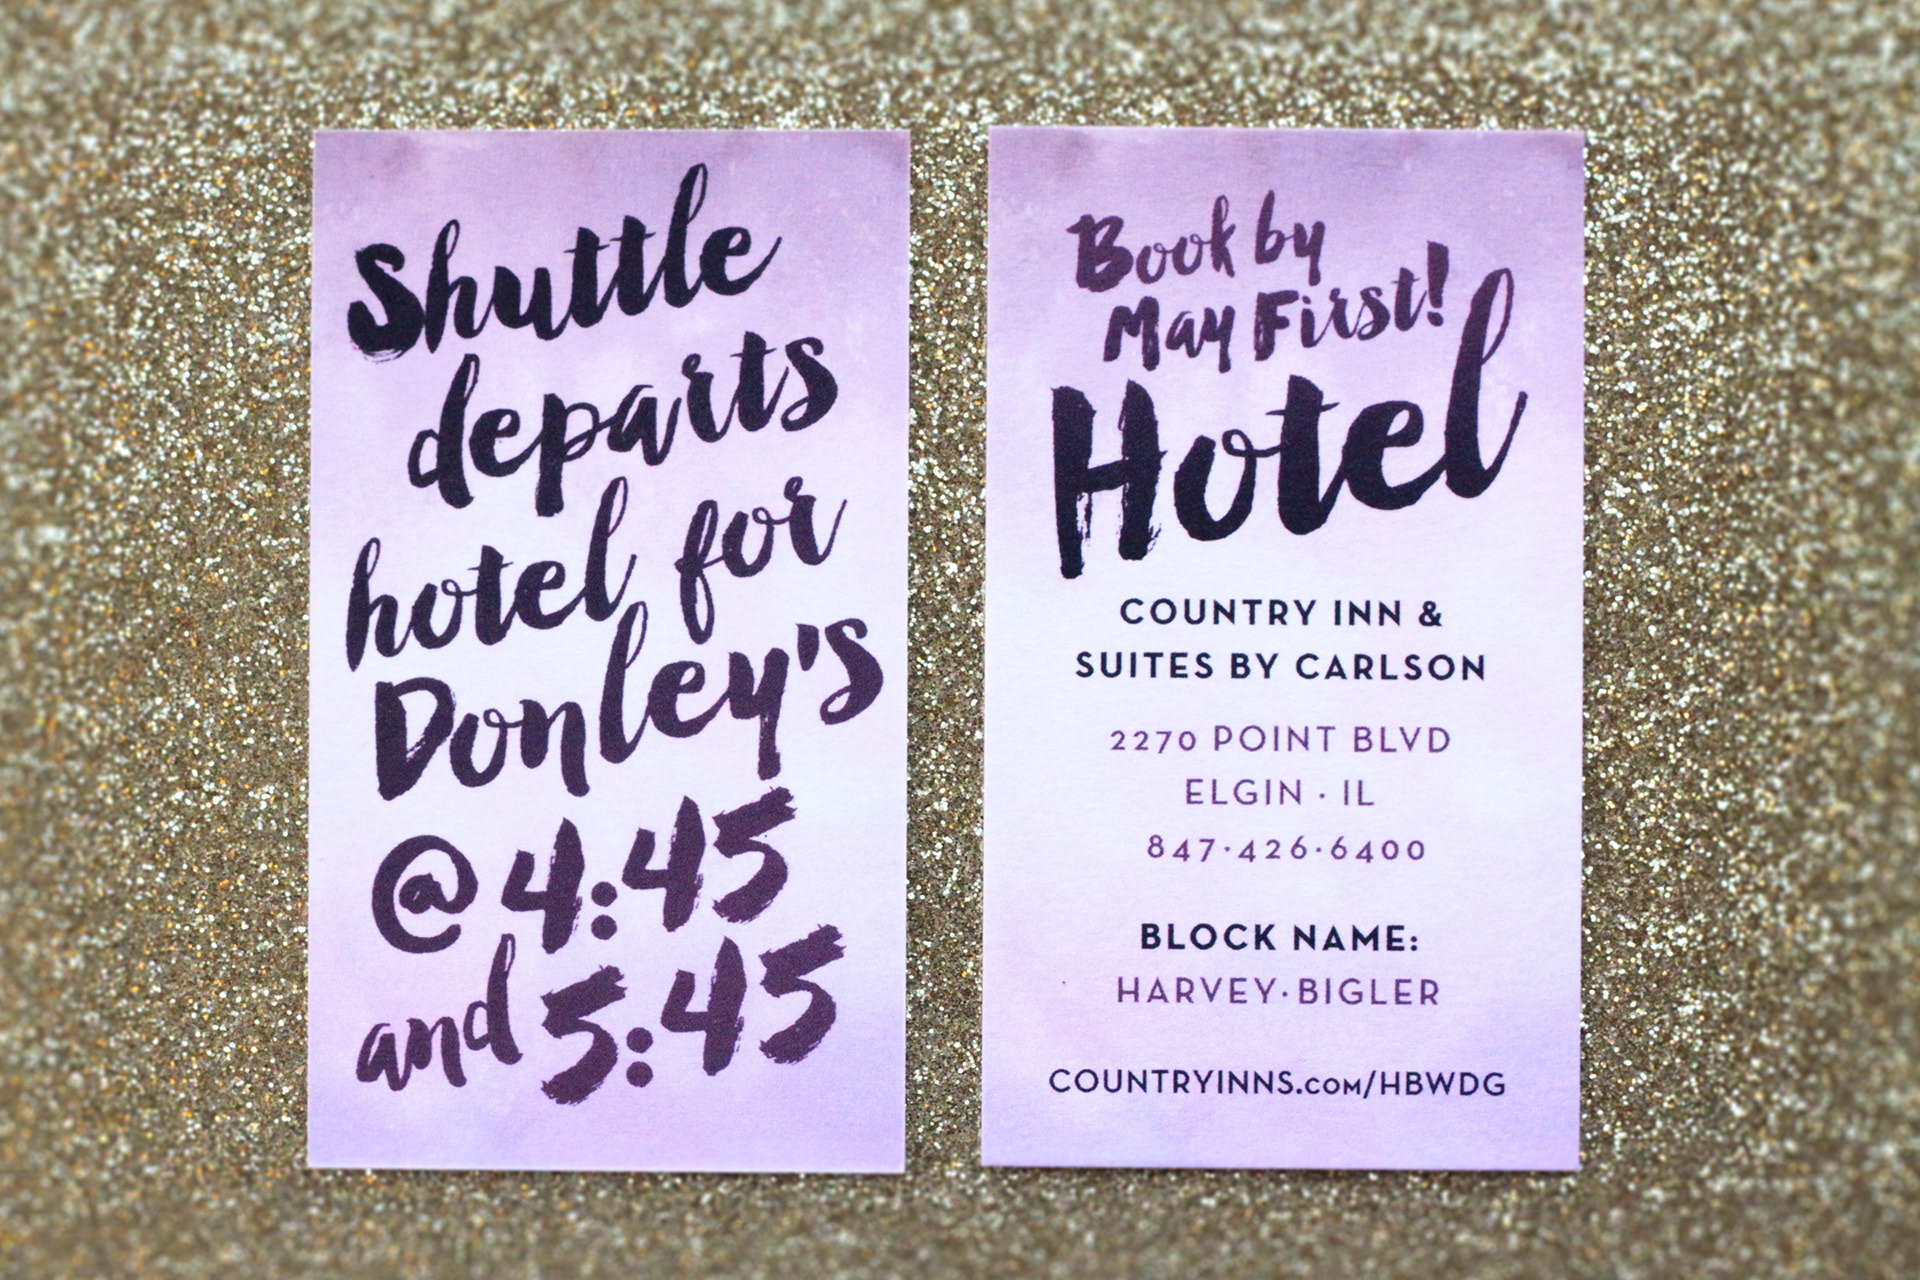 Shuttle
departs
hotel for
Donley's
@ 4:45
and 5:45
Book by
May First!
Hotel
COUNTRY INN &
SUITES BY CARLSON
2270 POINT BLVD
ELGIN · IL
847·426·6400
BLOCK NAME:
HARVEY·BIGLER
COUNTRYINNS.COM/HBWDG